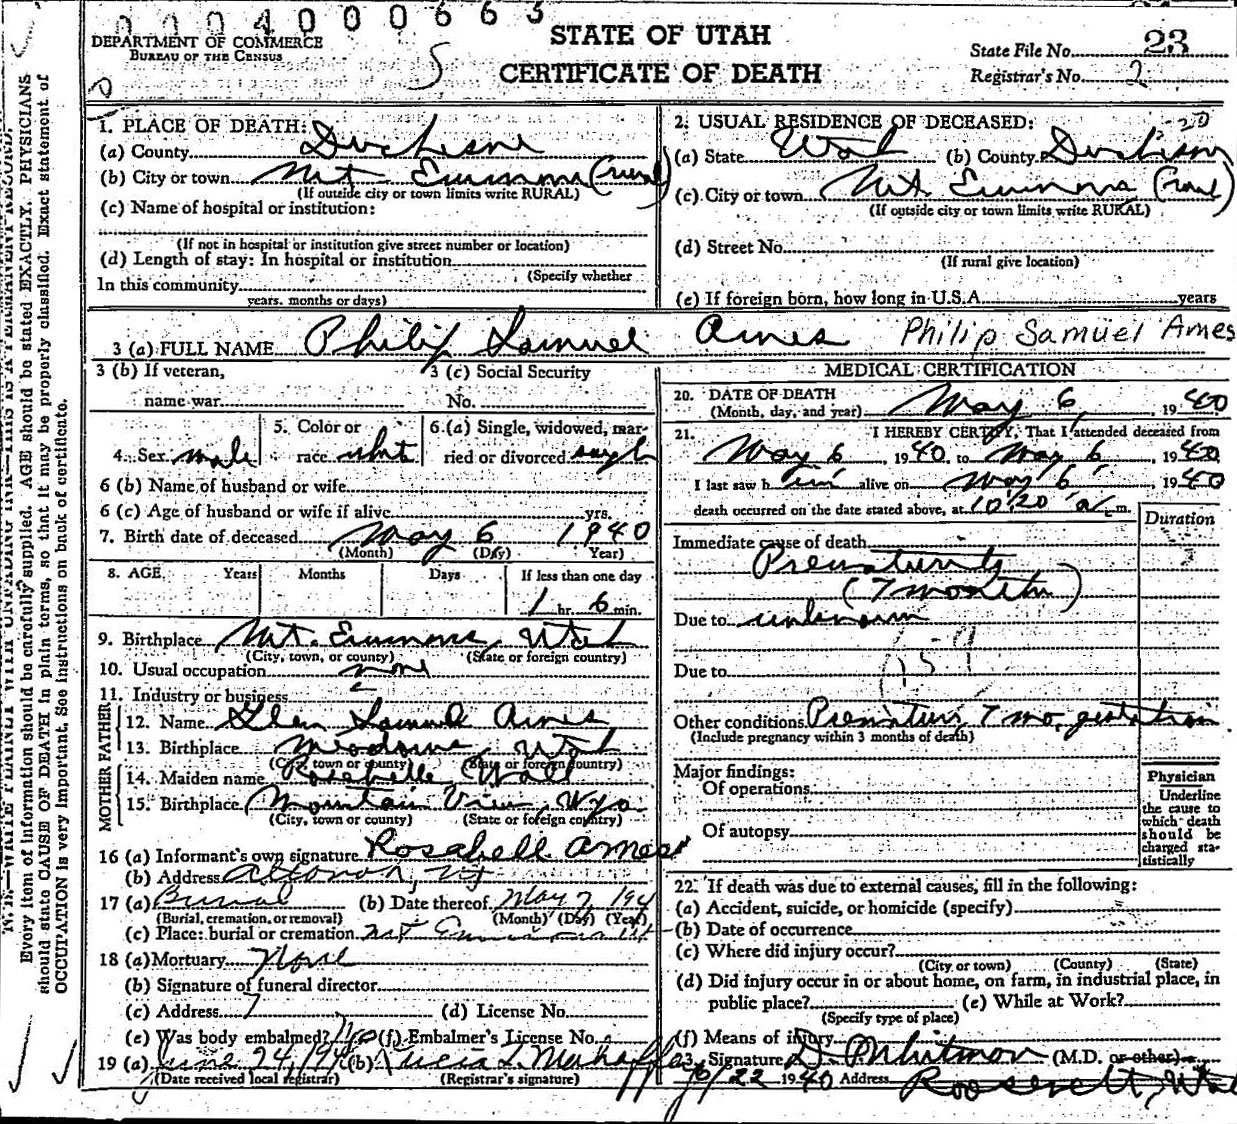 0004000665
DEPARTMENT OF COMMERCE
BUREAU OF THE CENSUS
STATE OF UTAH
CERTIFICATE OF DEATH
State File No. 23
Registrar's No. 2
Every item of information should be carefully supplied. AGE should be stated EXACTLY. PHYSICIANS
should state CAUSE OF DEATH in plain terms, so that it may be properly classified. Exact statement of
OCCUPATION is very important. See instructions on back of certificate.
1. PLACE OF DEATH:
(a) County Duchesne
(b) City or town Mt Emmons (rural)
(If outside city or town limits write RURAL)
(c) Name of hospital or institution:
(If not in hospital or institution give street number or location)
(d) Length of stay: In hospital or institution
(Specify whether
In this community
years, months or days)
2. USUAL RESIDENCE OF DECEASED:
(a) State Utah (b) County Duchesne
(c) City or town Mt Emmons (rural)
(If outside city or town limits write RURAL)
(d) Street No.
(If rural give location)
(e) If foreign born, how long in U.S.A. years
3 (a) FULL NAME Philip Samuel Ames Philip Samuel Ames
3 (b) If veteran,
name war
3 (c) Social Security
No.
4. Sex male
5. Color or
race white
6. (a) Single, widowed, mar-
ried or divorced single
6 (b) Name of husband or wife
6 (c) Age of husband or wife if alive yrs.
7. Birth date of deceased May 6 1940
(Month) (Day) Year)
8. AGE Years Months Days If less than one day
1 hr. 6 min.
9. Birthplace Mt. Emmons, Utah
(City, town, or county) (State or foreign country)
10. Usual occupation none
11. Industry or business
FATHER
12. Name Glen Samuel Ames
13. Birthplace Meadow, Utah
(City, town or county) (State or foreign country)
MOTHER
14. Maiden name Rosabelle Wall
15. Birthplace Mountain View, Wyo
(City, town or county) (State or foreign country)
16 (a) Informant's own signature Rosabell Ames
(b) Address Altonah, Ut
17 (a) Burial (b) Date thereof May 7, 194
(Burial, cremation, or removal) (Month) (Day) (Year)
(c) Place: burial or cremation Mt Emmons Ut
18 (a) Mortuary None
(b) Signature of funeral director
(c) Address (d) License No.
(e) Was body embalmed? No (f) Embalmer's License No.
19 (a) June 24, 1940 (b) Lucia L. Mahaffey
(Date received local registrar) (Registrar's signature)
MEDICAL CERTIFICATION
20. DATE OF DEATH
(Month, day, and year) May 6, 1940
21. I HEREBY CERTIFY, That I attended deceased from
May 6, 1940, to May 6, 1940
I last saw him alive on May 6, 1940
death occurred on the date stated above, at 10:20 a.m.
Duration
Immediate cause of death
Prematurity
(7 months)
Due to unknown
159
Due to
Other conditions Premature 7 mo. gestation
(Include pregnancy within 3 months of death)
Major findings:
Of operations
Of autopsy
Physician
Underline
the cause to
which death
should be
charged sta-
tistically
22. If death was due to external causes, fill in the following:
(a) Accident, suicide, or homicide (specify)
(b) Date of occurrence
(c) Where did injury occur?
(City or town) (County) (State)
(d) Did injury occur in or about home, on farm, in industrial place, in
public place? (e) While at Work?
(Specify type of place)
(f) Means of injury
23. Signature D. P. Whitmore (M.D. or other)
6/22 1940 Address Roosevelt, Utah